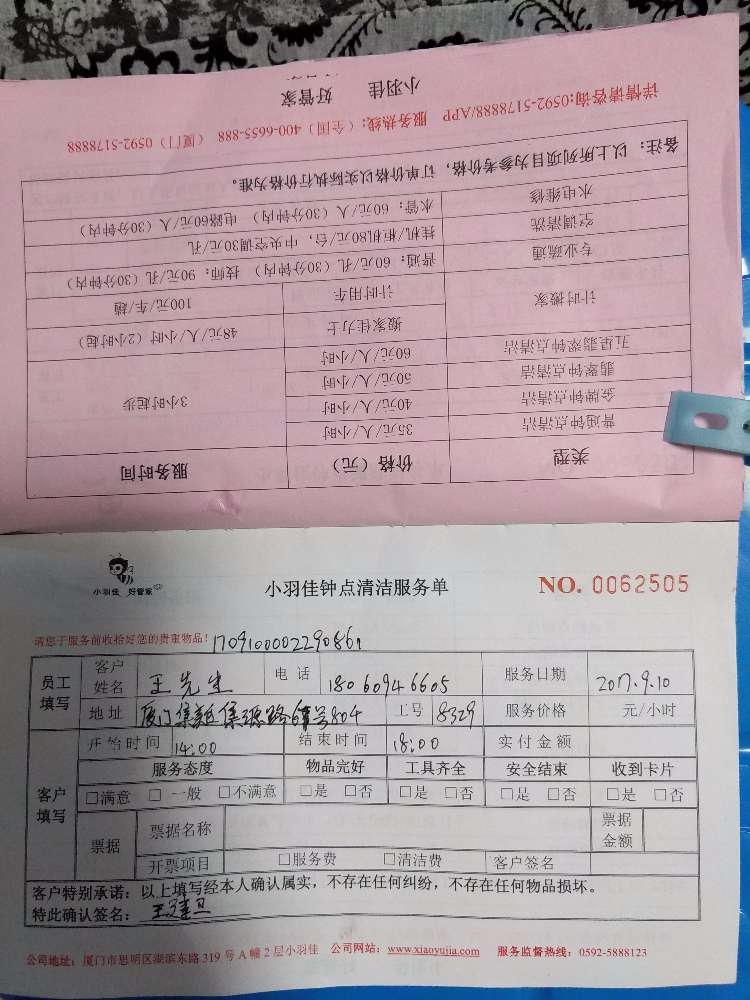 小羽佳 好管家
详情请咨询:0592-5178888/APP 服务热线:(全国) 400-6655-888 (厦门) 0592-5178888
备注: 以上所列项目为参考价格,订单价格以实际执行价格为准。
水电维修 水管: 60元/人 (30分钟内) 电路60元/人 (30分钟内)
空调清洗 挂机/柜机80元/台, 中央空调30元/孔
专业疏通 普通: 60元/孔 (30分钟内) 技师: 90元/孔 (30分钟)
计时搬家 计时用车 100元/车/趟
搬家佳力士 48元/人/小时 (2小时起)
五星翡翠钟点清洁 60元/人/小时
翡翠钟点清洁 50元/人/小时 3小时起步
金牌钟点清洁 40元/人/小时
普通钟点清洁 35元/人/小时
类型 价格 (元) 服务时间
小羽佳 好管家
小羽佳钟点清洁服务单 NO. 0062505
请您于服务前收拾好您的贵重物品! 1709100002290861
员工填写 客户姓名 王先生 电话 18060946605 服务日期 2017.9.10
地址 厦门集美区集源路 号804 工号 8329 服务价格 元/小时
开始时间 14:00 结束时间 18:00 实付金额
客户填写 服务态度 物品完好 工具齐全 安全结束 收到卡片
□满意 □一般 □不满意 □是 □否 □是 □否 □是 □否 □是 □否
票据 票据名称 票据金额
开票项目 □服务费 □清洁费 客户签名
客户特别承诺: 以上填写经本人确认属实,不存在任何纠纷,不存在任何物品损坏。
特此确认签名: 王
公司地址: 厦门市思明区湖滨东路 319 号 A 幢 2 层小羽佳 公司网站: www.xiaoyujia.com 服务监督热线: 0592-5888123